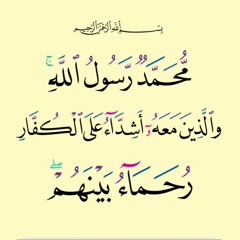 بسم الله الرحمن الرحيم
مُّحَمَّدٌ رَّسُولُ ٱللَّهِ ۚ
وَٱلَّذِينَ مَعَهُۥٓ أَشِدَّآءُ عَلَى ٱلْكُفَّارِ
رُحَمَآءُ بَيْنَهُمْ ۖ